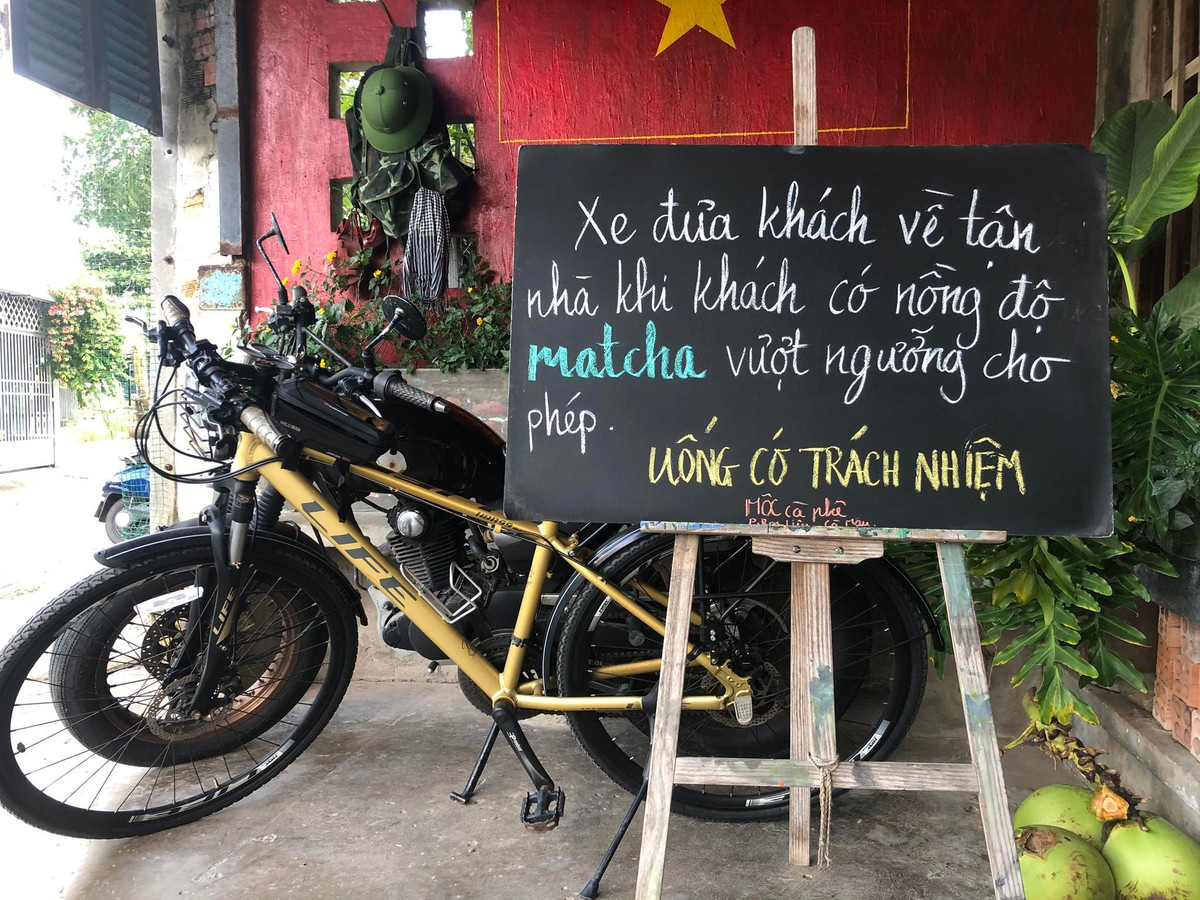 Xe đưa khách về tận
nhà khi khách có nồng độ
matcha vượt ngưỡng cho
phép.
UỐNG CÓ TRÁCH NHIỆM
MỘC cà phê
Cà Mau.
LIFE
LIFE